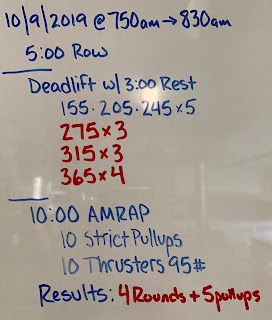 10/9/2019 @ 750am → 830am
5:00 Row
Deadlift w/ 3:00 Rest
155 · 205 · 245 x 5
275 x 3
315 x 3
365 x 4
10:00 AMRAP
10 Strict Pullups
10 Thrusters 95#
Results: 4 Rounds + 5 pullups